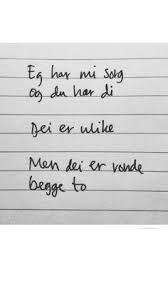 Eg har mi sorg
og du har di
Dei er ulike
Men dei er vonde
begge to